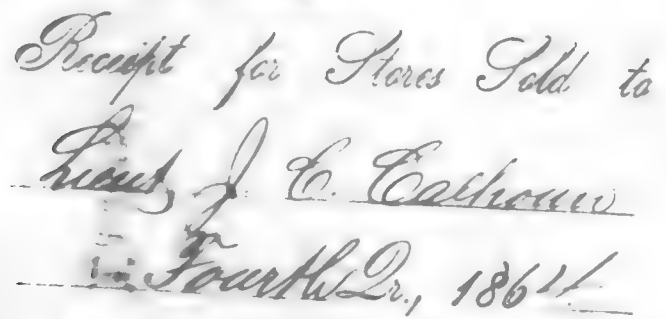 Receipt for Stores Sold to
Lieut, J. C. Calhoun
Fourth Qr., 1864